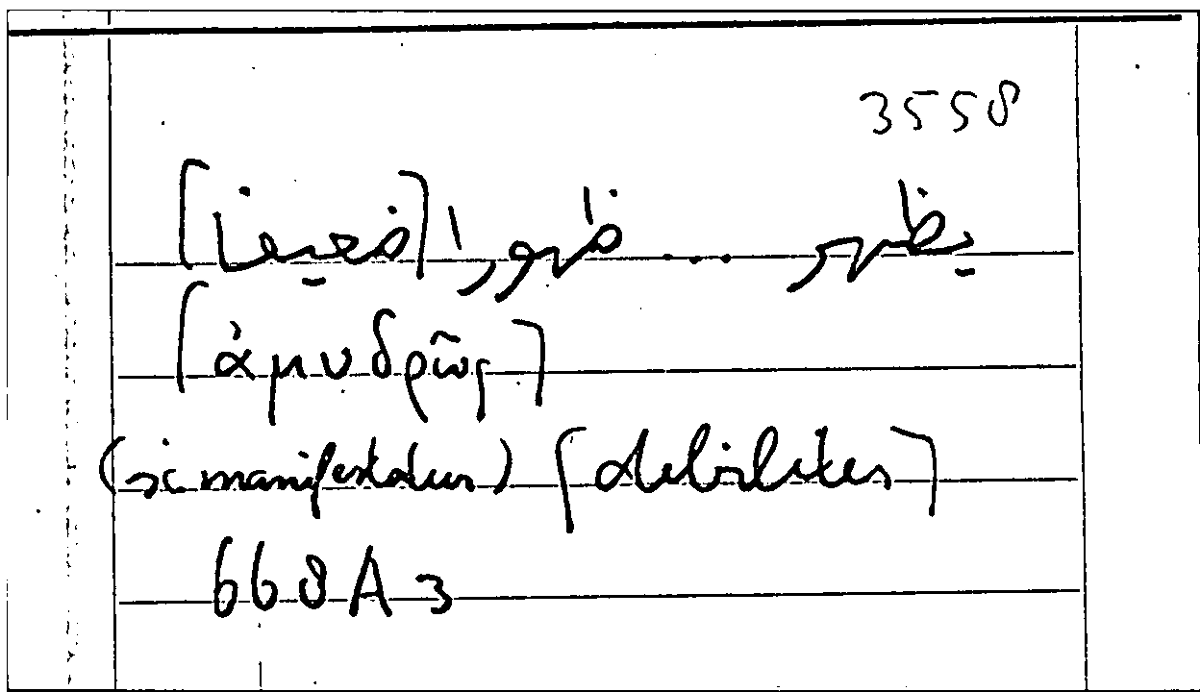 3558
يظهر ... ظهورا [ضعيفا]
[ἀμυδρῶς]
(sc. manifestatur) [debiliter]
668A3